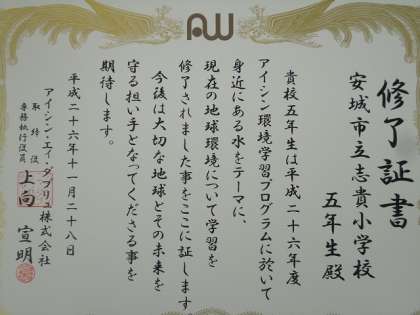 AW
修了証書
安城市立志貴小学校
五年生殿
貴校五年生は平成二十六年度
アイシン環境学習プログラムに於いて
身近にある水をテーマに、
現在の地球環境について学習を
修了されました事をここに証します。
今後は大切な地球とその未来を
守る担い手となってくださる事を
期待します。
平成二十六年十一月二十八日
アイシン・エイ・ダブリュ株式会社
取締役
専務執行役員
上向宣明